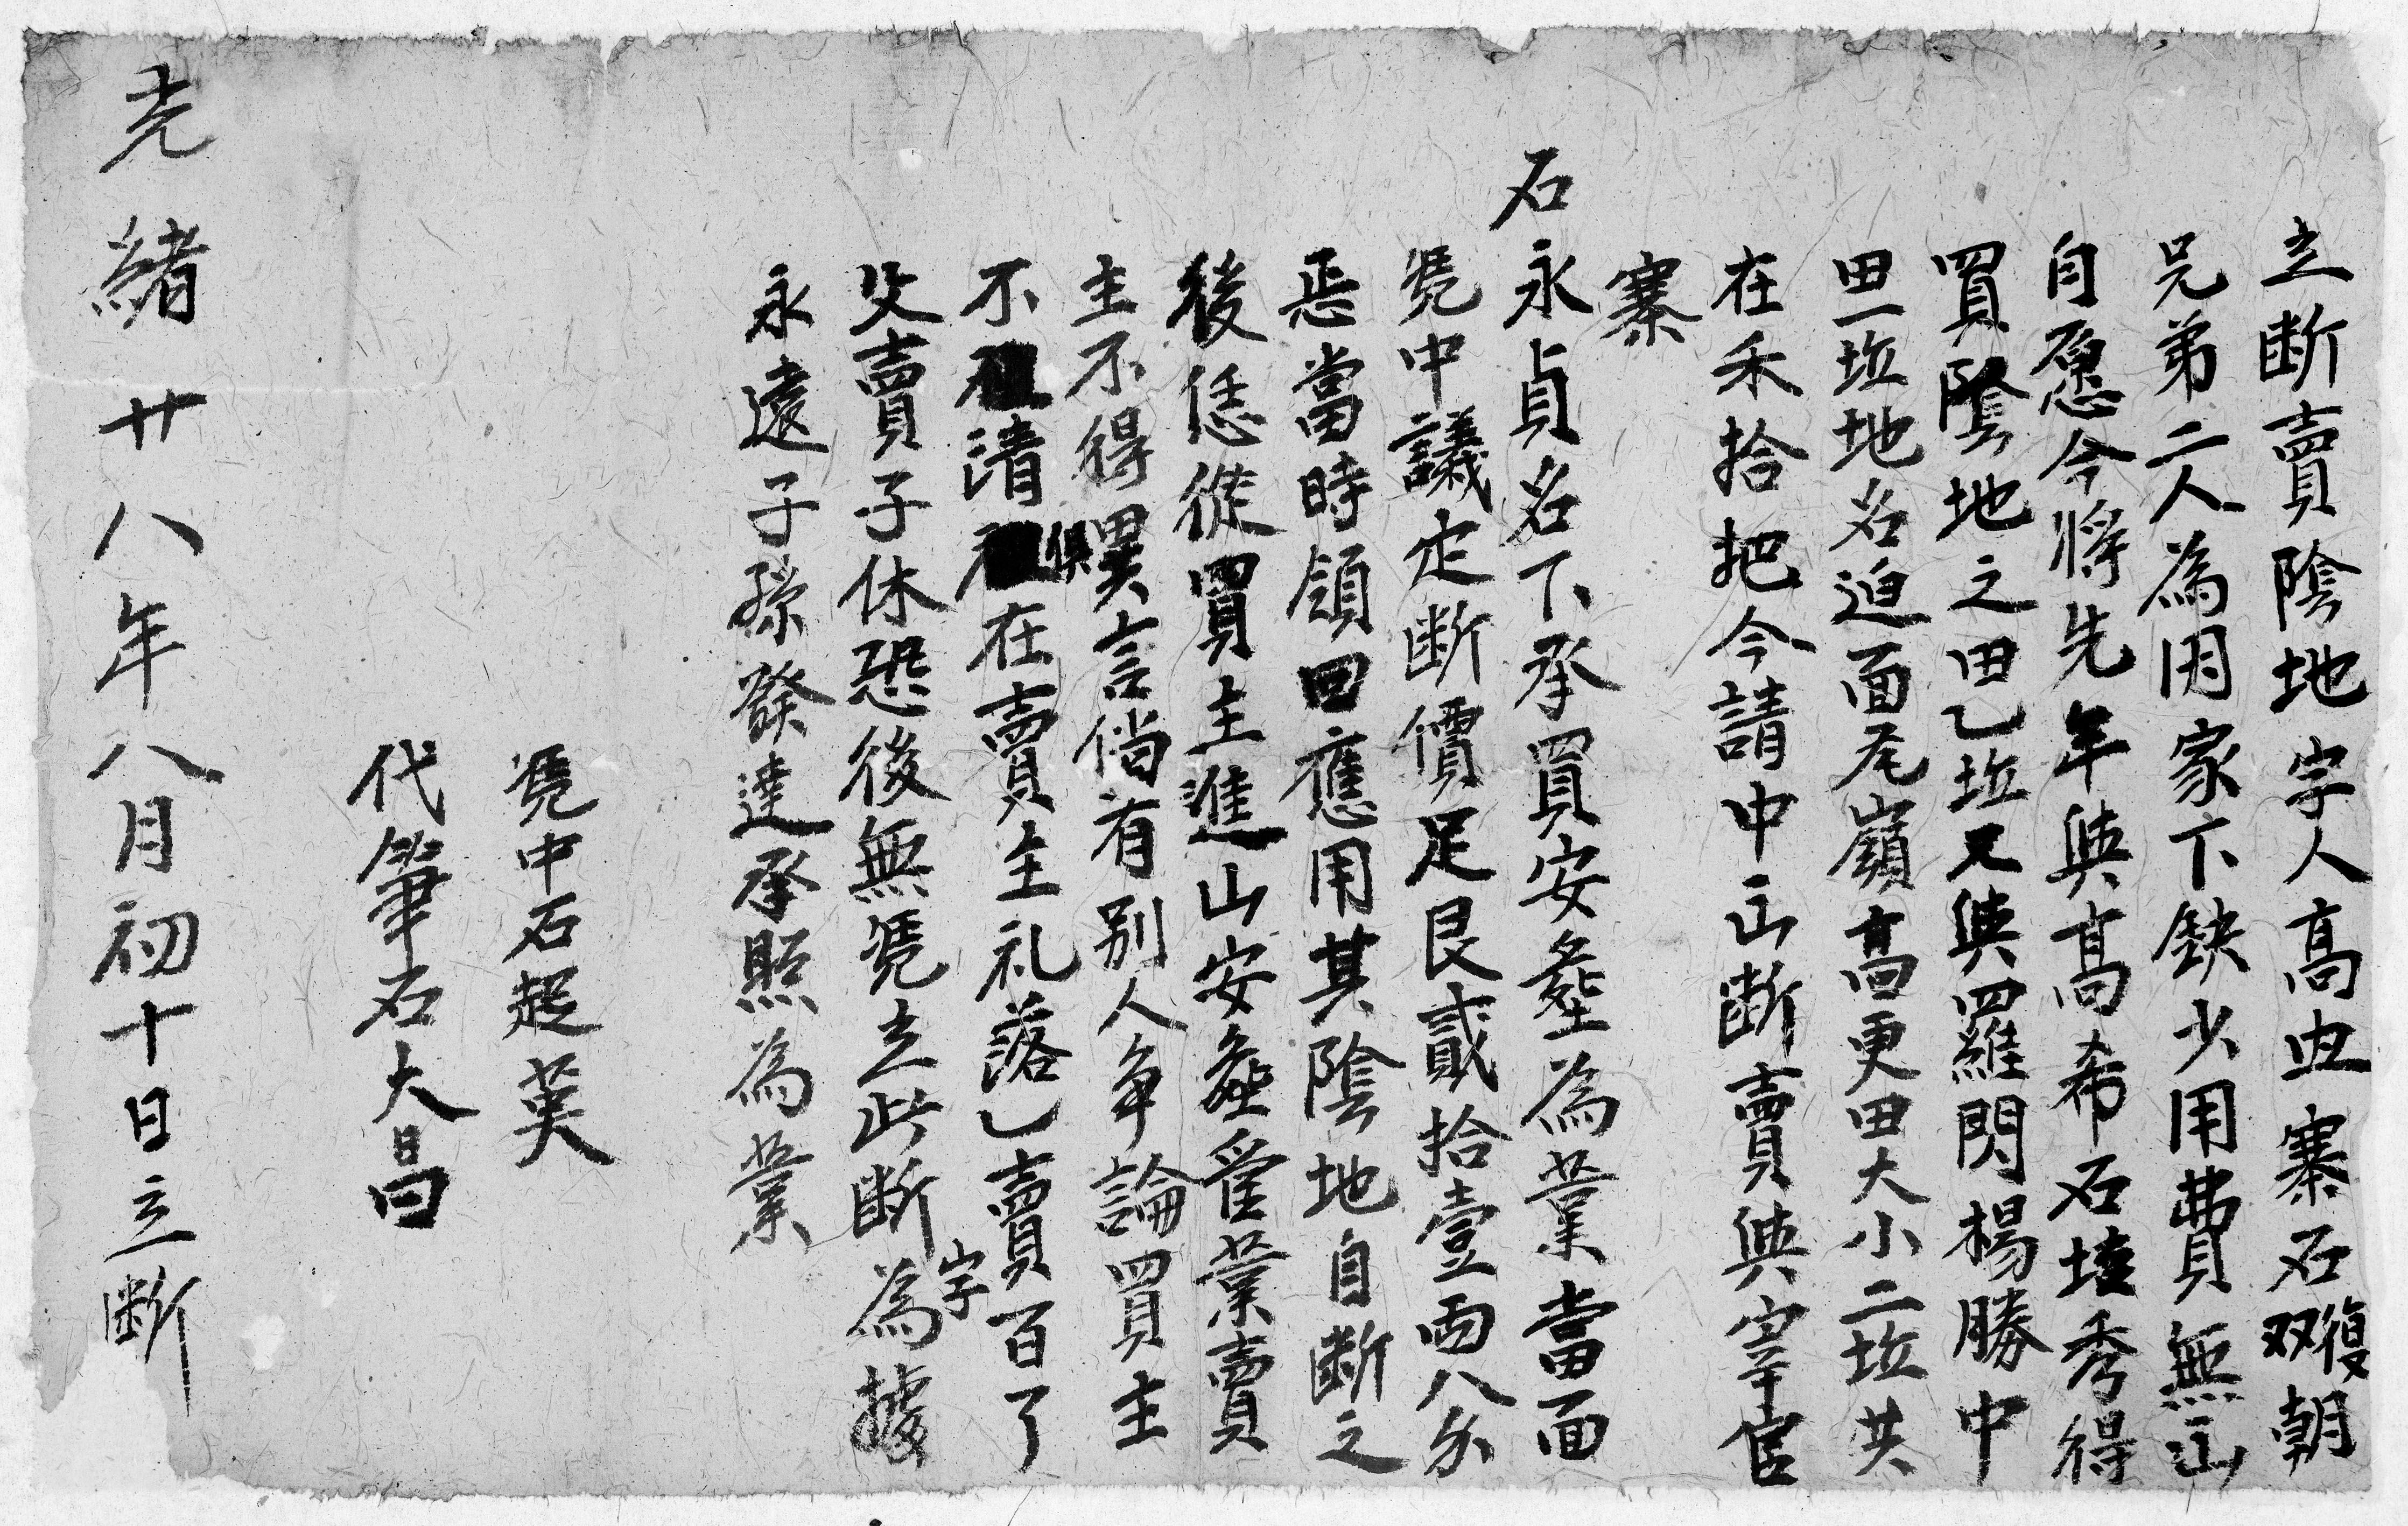 立断賣陰地字人高虫寨石双復朝
兄弟二人為因家下缺少用費無出
自愿今將先年與高希石墶秀得
買陰地之田乙坵又與四羅閃楊勝中
田一坵地名迫面尾嶺高更田大小二坵共
在禾拾把今請中出断賣與宰官
寨
石永貞名下承買安塟為業當面
凴中議定断價足艮貳拾壹両八分
悉當時領回應用其陰地自断之
後恁從買主進山安塟管業賣
主不得異言倘有別人争論買主
不清俱在賣主礼落乙賣百了
父賣子休恐後無凴立此断字為據
永遠子孫發達承照為業
凴中石起英
代筆石大昌
光緒廿八年八月初十日立断